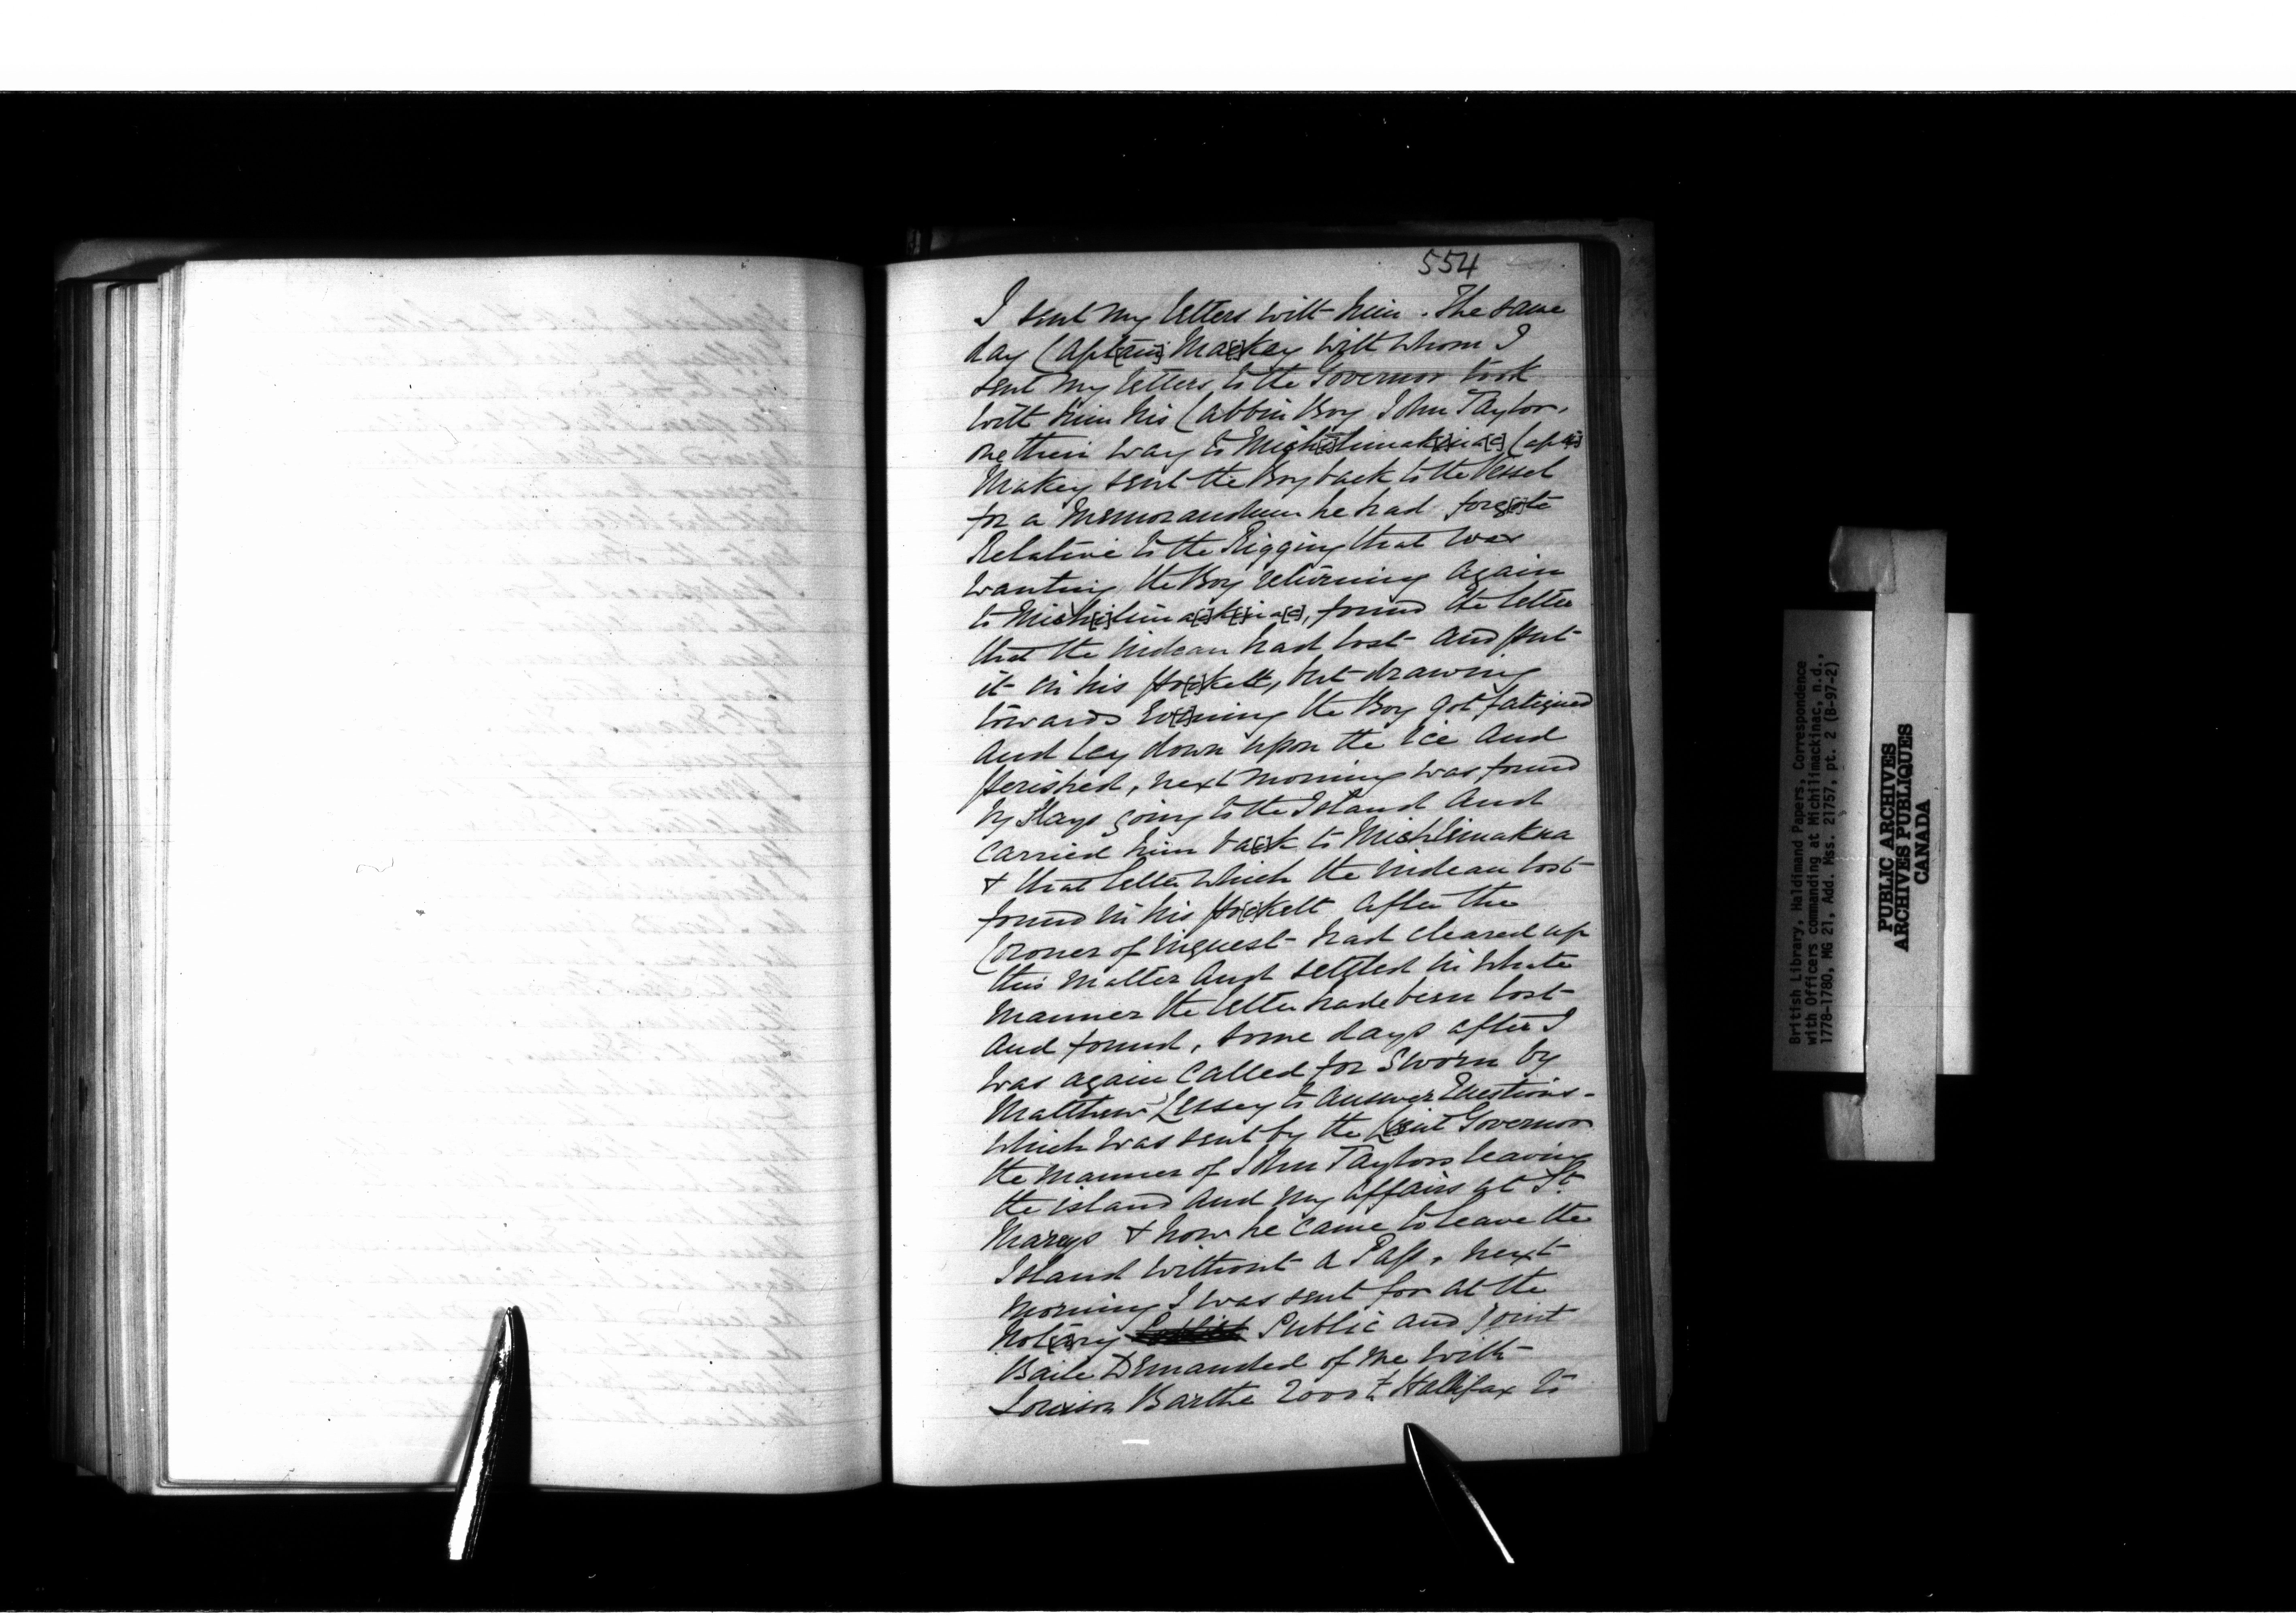 554
I sent my letters with him. The same
day Capt[ain] Ma[c]key with whom I
sent my letters to the Governor took
with him his Cabbin Boy John Taylor,
one their way to Mich[i]limak[i]na[c] Cap[t]
Makey sent the Boy back to the Vessel
for a Memorandum he had forg[o]te
Relative to the Rigging that was
wanting the Boy returning again
to Mich[i]lima[c]k[i]na[c], found the letter
that the Indean had lost and put
it in his po[c]kett, but drawing
towards Ev[e]ning the Boy got fatigued
and lay down upon the Ice and
perished, next morning was found
by Slays going to the Island and
carried him ba[c]k to Michlimakna
& that letter which the Indean lost
found in his po[c]kett after the
Coroner of Inquest had cleared up
this matter and settled in whate
manner the letter hade been lost
and found, some days after I
was again called for Sworn by
Matthew Lessey to answer Questions
which was sent by the Leut Governor
the manner of John Taylors leaving
the island and my affairs at St.
Marys & how he came to leave the
Island without a Pass, next
morning I was sent for at the
Not[a]ry Public and Joint
Baile Demanded of me with
Louison Barthe 2000 £ Hallifax to
British Library, Haldimand Papers, Correspondence
with Officers commanding at Michilimackinac, n.d.,
1778-1780, MG 21, Add. Mss. 21757, pt. 2 (B-97-2)
PUBLIC ARCHIVES
ARCHIVES PUBLIQUES
CANADA